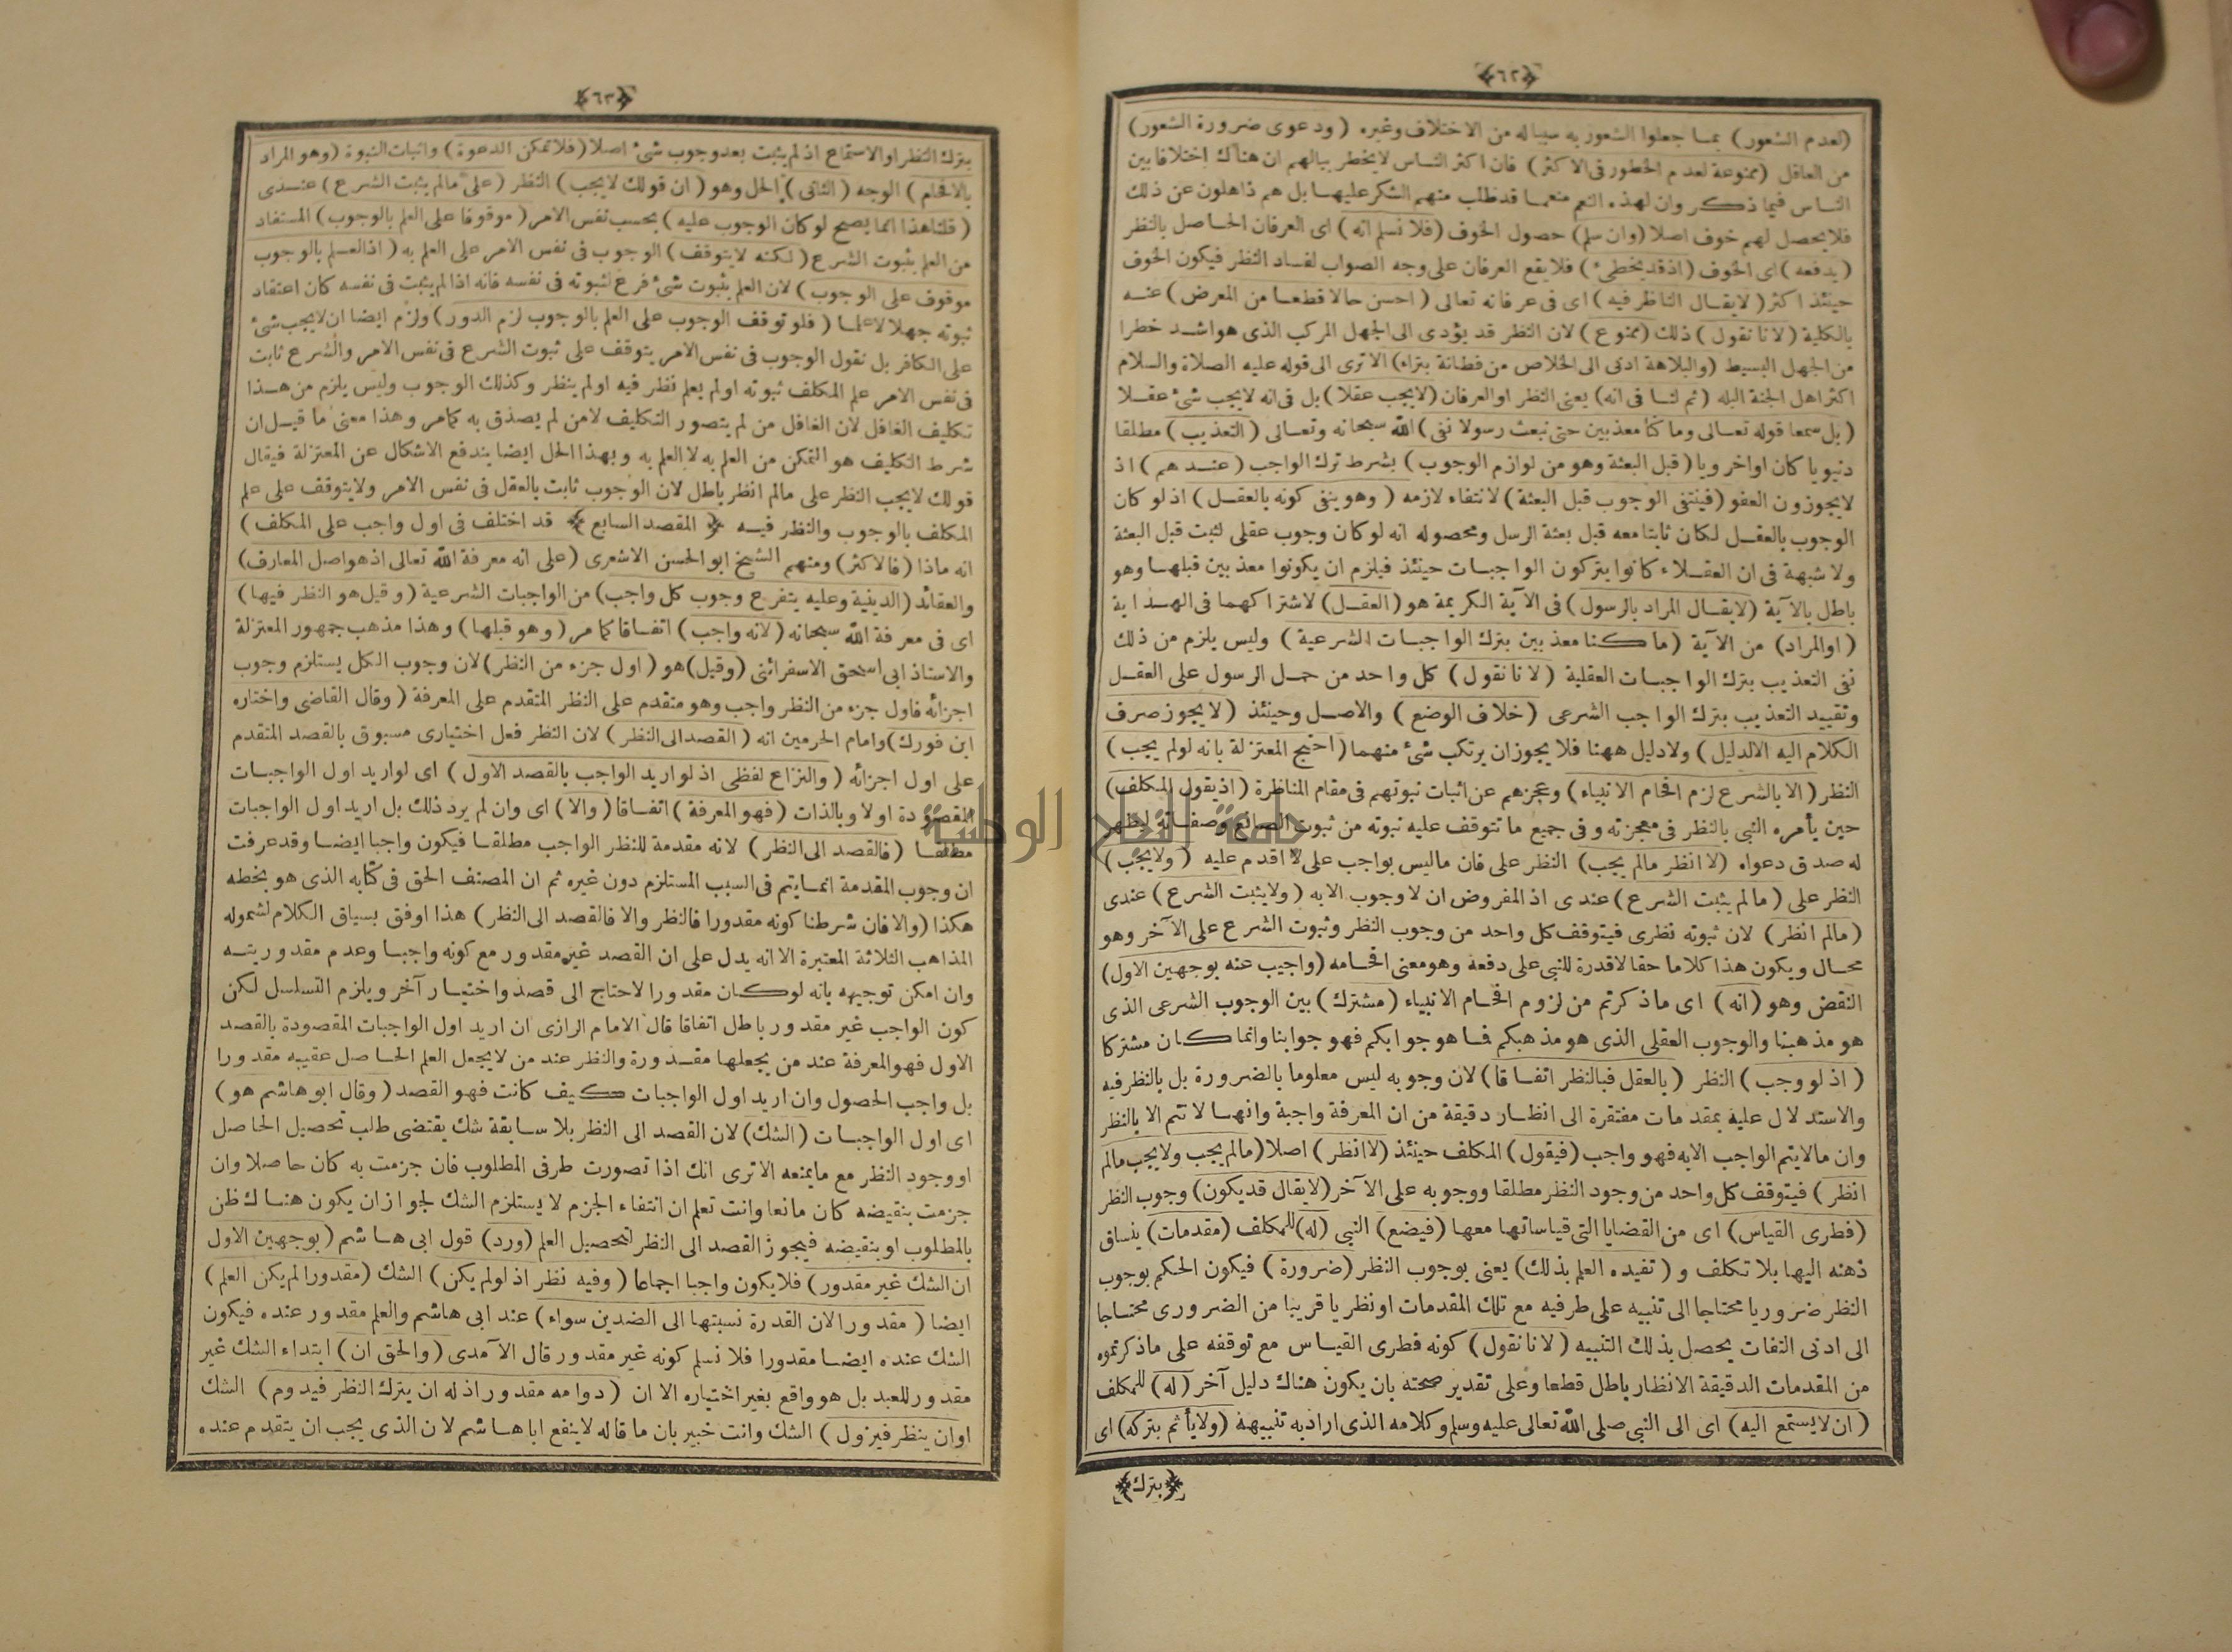 ﴿٦٢﴾
(لعدم الشعور) بما جعلوا الشعور به سببا له من الاختلاف وغيره (ودعوى ضرورة الشعور)
من العاقل (ممنوعة لعدم الخطور فى الاكثر) فان اكثر الناس لا يخطر ببالهم ان هناك اختلافا بين
الناس فيما ذكر وان لهذه النعم منعما قد طلب منهم الشكر عليها بل هم ذاهلون عن ذلك
فلا يحصل لهم خوف اصلا (وان سلم) حصول الخوف (فلا نسلم انه) اى العرفان الحاصل بالنظر
(يدفعه) اى الخوف (اذ قد يخطئ) فلا يقع العرفان على وجه الصواب لفساد النظر فيكون الخوف
حينئذ اكثر (لا يقال الناظر فيه) اى فى عرفانه تعالى (احسن حالا قطعا من المعرض) عنه
بالكلية (لانا نقول) ذلك (ممنوع) لان النظر قد يؤدى الى الجهل المركب الذى هو اشد خطرا
من الجهل البسيط (والبلاهة ادنى الى الخلاص من فطانة بتراء) الا ترى الى قوله عليه الصلاة والسلام
اكثر اهل الجنة البله (ثم لنا فى انه) يعنى النظر او العرفان (لا يجب عقلا) بل فى انه لا يجب شئ عقلا
(بل سمعا قوله تعالى وما كنا معذبين حتى نبعث رسولا نفى) الله سبحانه وتعالى (التعذيب) مطلقا
دنيويا كان او اخرويا (قبل البعثة وهو من لوازم الوجوب) بشرط ترك الواجب (عندهم) اذ
لا يجوزون العفو (فينتفى الوجوب قبل البعثة) لانتفاء لازمه (وهو ينفى كونه بالعقل) اذ لو كان
الوجوب بالعقل لكان ثابتا معه قبل بعثة الرسل ومحصوله انه لو كان وجوب عقلى لثبت قبل البعثة
ولا شبهة فى ان العقلاء كانوا يتركون الواجبات حينئذ فيلزم ان يكونوا معذبين قبلها وهو
باطل بالآية (لا يقال المراد بالرسول) فى الآية الكريمة هو (العقل) لاشتراكهما فى الهداية
(او المراد) من الآية (ما كنا معذبين بترك الواجبات الشرعية) وليس يلزم من ذلك
نفى التعذيب بترك الواجبات العقلية (لانا نقول) كل واحد من حمل الرسول على العقل
وتقييد التعذيب بترك الواجب الشرعى (خلاف الوضع) والاصل وحينئذ (لا يجوز صرف
الكلام اليه الا لدليل) ولا دليل ههنا فلا يجوز ان يرتكب شئ منهما (احتج المعتزلة بانه لو لم يجب)
النظر (الا بالشرع لزم افحام الانبياء) وعجزهم عن اثبات نبوتهم فى مقام المناظرة (اذ يقول المكلف)
حين يأمره النبى بالنظر فى معجزته وفى جميع ما تتوقف عليه نبوته من ثبوت الصانع وصفاته ليظهر
له صدق دعواه (لا انظر ما لم يجب) النظر على فان ما ليس بواجب على لا اقدم عليه (ولا يجب)
النظر على (ما لم يثبت الشرع) عندى اذ المفروض ان لا وجوب الا به (ولا يثبت الشرع) عندى
(ما لم انظر) لان ثبوته نظرى فيتوقف كل واحد من وجوب النظر وثبوت الشرع على الآخر وهو
محال ويكون هذا كلاما حقا لا قدرة للنبى على دفعه وهو معنى افحامه (واجيب عنه بوجهين الاول)
النقض وهو (انه) اى ما ذكرتم من لزوم افحام الانبياء (مشترك) بين الوجوب الشرعى الذى
هو مذهبنا والوجوب العقلى الذى هو مذهبكم فما هو جوابكم فهو جوابنا وانما كان مشتركا
(اذ لو وجب) النظر (بالعقل فبالنظر اتفاقا) لان وجوبه ليس معلوما بالضرورة بل بالنظر فيه
والاستدلال عليه بمقدمات مفتقرة الى انظار دقيقة من ان المعرفة واجبة وانها لا تتم الا بالنظر
وان ما لا يتم الواجب الا به فهو واجب (فيقول) المكلف حينئذ (لا انظر) اصلا (ما لم يجب ولا يجب ما لم
انظر) فيتوقف كل واحد من وجود النظر مطلقا ووجوبه على الآخر (لا يقال قد يكون) وجوب النظر
(فطرى القياس) اى من القضايا التى قياساتها معها (فيضع) النبى (له) للمكلف (مقدمات) ينساق
ذهنه اليها بلا تكلف و (تفيده العلم بذلك) يعنى بوجوب النظر (ضرورة) فيكون الحكم بوجوب
النظر ضروريا محتاجا الى تنبيه على طرفيه مع تلك المقدمات او نظريا قريبا من الضرورى محتاجا
الى ادنى التفات يحصل بذلك التنبيه (لانا نقول) كونه فطرى القياس مع توقفه على ما ذكرتموه
من المقدمات الدقيقة الانظار باطل قطعا وعلى تقدير صحته بان يكون هناك دليل آخر (له) للمكلف
(ان لا يستمع اليه) اى الى النبى صلى الله تعالى عليه وسلم وكلامه الذى اراد به تنبيهه (ولا يأثم بتركه) اى
﴿بترك﴾
﴿٦٣﴾
بترك النظر او الاستماع اذ لم يثبت بعد وجوب شئ اصلا (فلا تمكن الدعوة) واثبات النبوة (وهو المراد
بالافحام) الوجه (الثانى) الحل وهو (ان قولك لا يجب) النظر (على ما لم يثبت الشرع) عندى
(قلنا هذا انما يصح لو كان الوجوب عليه) بحسب نفس الامر (موقوفا على العلم بالوجوب) المستفاد
من العلم بثبوت الشرع (لكنه لا يتوقف) الوجوب فى نفس الامر على العلم به (اذ العلم بالوجوب
موقوف على الوجوب) لان العلم بثبوت شئ فرع لثبوته فى نفسه فانه اذا لم يثبت فى نفسه كان اعتقاد
ثبوته جهلا لا علما (فلو توقف الوجوب على العلم بالوجوب لزم الدور) ولزم ايضا ان لا يجب شئ
على الكافر بل نقول الوجوب فى نفس الامر يتوقف على ثبوت الشرع فى نفس الامر والشرع ثابت
فى نفس الامر علم المكلف ثبوته او لم يعلم نظر فيه او لم ينظر وكذلك الوجوب وليس يلزم من هذا
تكليف الغافل لان الغافل من لم يتصور التكليف لا من لم يصدق به كما مر وهذا معنى ما قيل ان
شرط التكليف هو التمكن من العلم به لا العلم به وبهذا الحل ايضا يندفع الاشكال عن المعتزلة فيقال
قولك لا يجب النظر على ما لم انظر باطل لان الوجوب ثابت بالعقل فى نفس الامر ولا يتوقف على علم
المكلف بالوجوب والنظر فيه ﴿المقصد السابع﴾ قد اختلف فى اول واجب على المكلف)
انه ماذا (فالاكثر) ومنهم الشيخ ابو الحسن الاشعرى (على انه معرفة الله تعالى اذ هو اصل المعارف)
والعقائد (الدينية وعليه يتفرع وجوب كل واجب) من الواجبات الشرعية (وقيل هو النظر فيها)
اى فى معرفة الله سبحانه (لانه واجب) اتفاقا كما مر (وهو قبلها) وهذا مذهب جمهور المعتزلة
والاستاذ ابى اسحق الاسفرائنى (وقيل) هو (اول جزء من النظر) لان وجوب الكل يستلزم وجوب
اجزائه فاول جزء من النظر واجب وهو متقدم على النظر المتقدم على المعرفة (وقال القاضى واختاره
ابن فورك) وامام الحرمين انه (القصد الى النظر) لان النظر فعل اختيارى مسبوق بالقصد المتقدم
على اول اجزائه (والنزاع لفظى اذ لو اريد الواجب بالقصد الاول) اى لو اريد اول الواجبات
المقصودة اولا وبالذات (فهو المعرفة) اتفاقا (والا) اى وان لم يرد ذلك بل اريد اول الواجبات
مطلقا (فالقصد الى النظر) لانه مقدمة للنظر الواجب مطلقا فيكون واجبا ايضا وقد عرفت
ان وجوب المقدمة انما يتم فى السبب المستلزم دون غيره ثم ان المصنف الحق فى كتابه الذى هو بخطه
هكذا (والا فان شرطنا كونه مقدورا فالنظر والا فالقصد الى النظر) هذا اوفق بسياق الكلام لشموله
المذاهب الثلاثة المعتبرة الا انه يدل على ان القصد غير مقدور مع كونه واجبا وعدم مقدوريته
وان امكن توجيهه بانه لو كان مقدورا لاحتاج الى قصد واختيار آخر ويلزم التسلسل لكن
كون الواجب غير مقدور باطل اتفاقا قال الامام الرازى ان اريد اول الواجبات المقصودة بالقصد
الاول فهو المعرفة عند من يجعلها مقدورة والنظر عند من لا يجعل العلم الحاصل عقيبه مقدورا
بل واجب الحصول وان اريد اول الواجبات كيف كانت فهو القصد (وقال ابو هاشم هو)
اى اول الواجبات (الشك) لان القصد الى النظر بلا سابقة شك يقتضى طلب تحصيل الحاصل
او وجود النظر مع ما يمنعه الا ترى انك اذا تصورت طرفى المطلوب فان جزمت به كان حاصلا وان
جزمت بنقيضه كان مانعا وانت تعلم ان انتفاء الجزم لا يستلزم الشك لجواز ان يكون هناك ظن
بالمطلوب او بنقيضه فيجوز القصد الى النظر لتحصيل العلم (ورد) قول ابى هاشم (بوجهين الاول
ان الشك غير مقدور) فلا يكون واجبا اجماعا (وفيه نظر اذ لو لم يكن) الشك (مقدورا لم يكن العلم)
ايضا (مقدورا لان القدرة نسبتها الى الضدين سواء) عند ابى هاشم والعلم مقدور عنده فيكون
الشك عنده ايضا مقدورا فلا نسلم كونه غير مقدور قال الآمدى (والحق ان) ابتداء الشك غير
مقدور للعبد بل هو واقع بغير اختياره الا ان (دوامه مقدور اذ له ان يترك النظر فيدوم) الشك
او ان ينظر فيزول) الشك وانت خبير بان ما قاله لا ينفع ابا هاشم لان الذى يجب ان يتقدم عنده
جامعة النجاح الوطنية